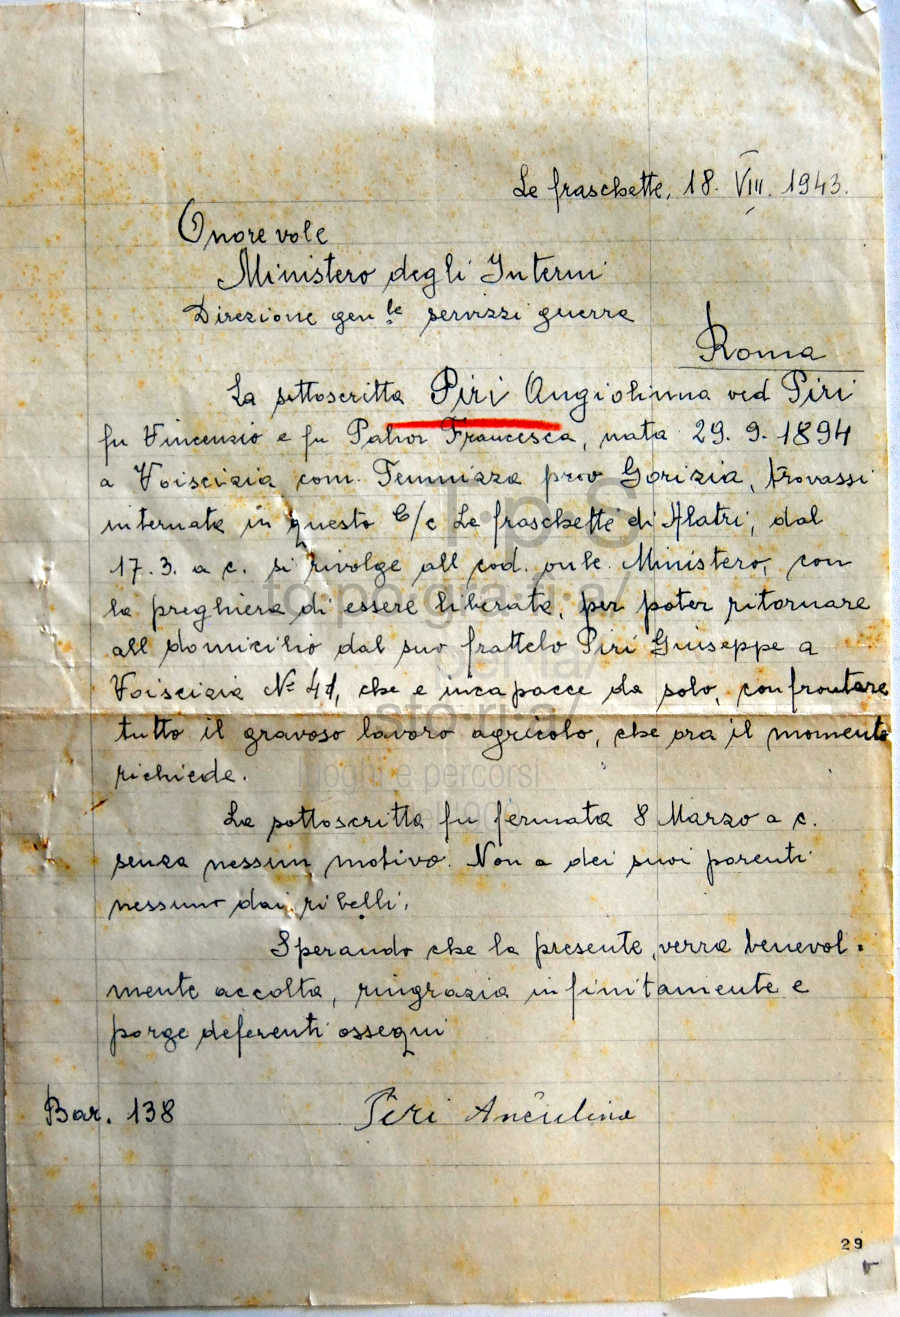 Le fraschette, 18. VIII. 1943.
Onorevole
Ministero degli Interni
Direzione gen.le servizzi guerra
Roma
La sottoscritta Piri Angiolinna ved Piri
fu Vincenzio e fu Pahor Francesca, nata 29. 9. 1894
a Voiscizia com. Temnizza prov Gorizia, trovassi
internata in questo C/c Le fraschette di Alatri, dal
17. 3. a c. si rivolge all cod. onle. Ministero, con
la preghiera di essere liberata, per poter ritornare
all domicilio dal suo frattelo Piri Giuseppe a
Voiscizia Nº 41, che e incapacce da solo, confrontare
tutto il gravoso lavoro agricolo, che ora il momento
richiede.
La sottoscritta fu fermata 8 Marzo a c.
senza nessun motivo. Non a dei suoi parenti
nessuno dai ribelli.
Sperando che la presente, verra benevol=
mente accolta, ringrazia infinitamente e
porge deferenti ossequi
Bar. 138
Piri Anciulina
29
to·po·gra·fi·a/
per la/
sto·ri·a/
luoghi e percorsi